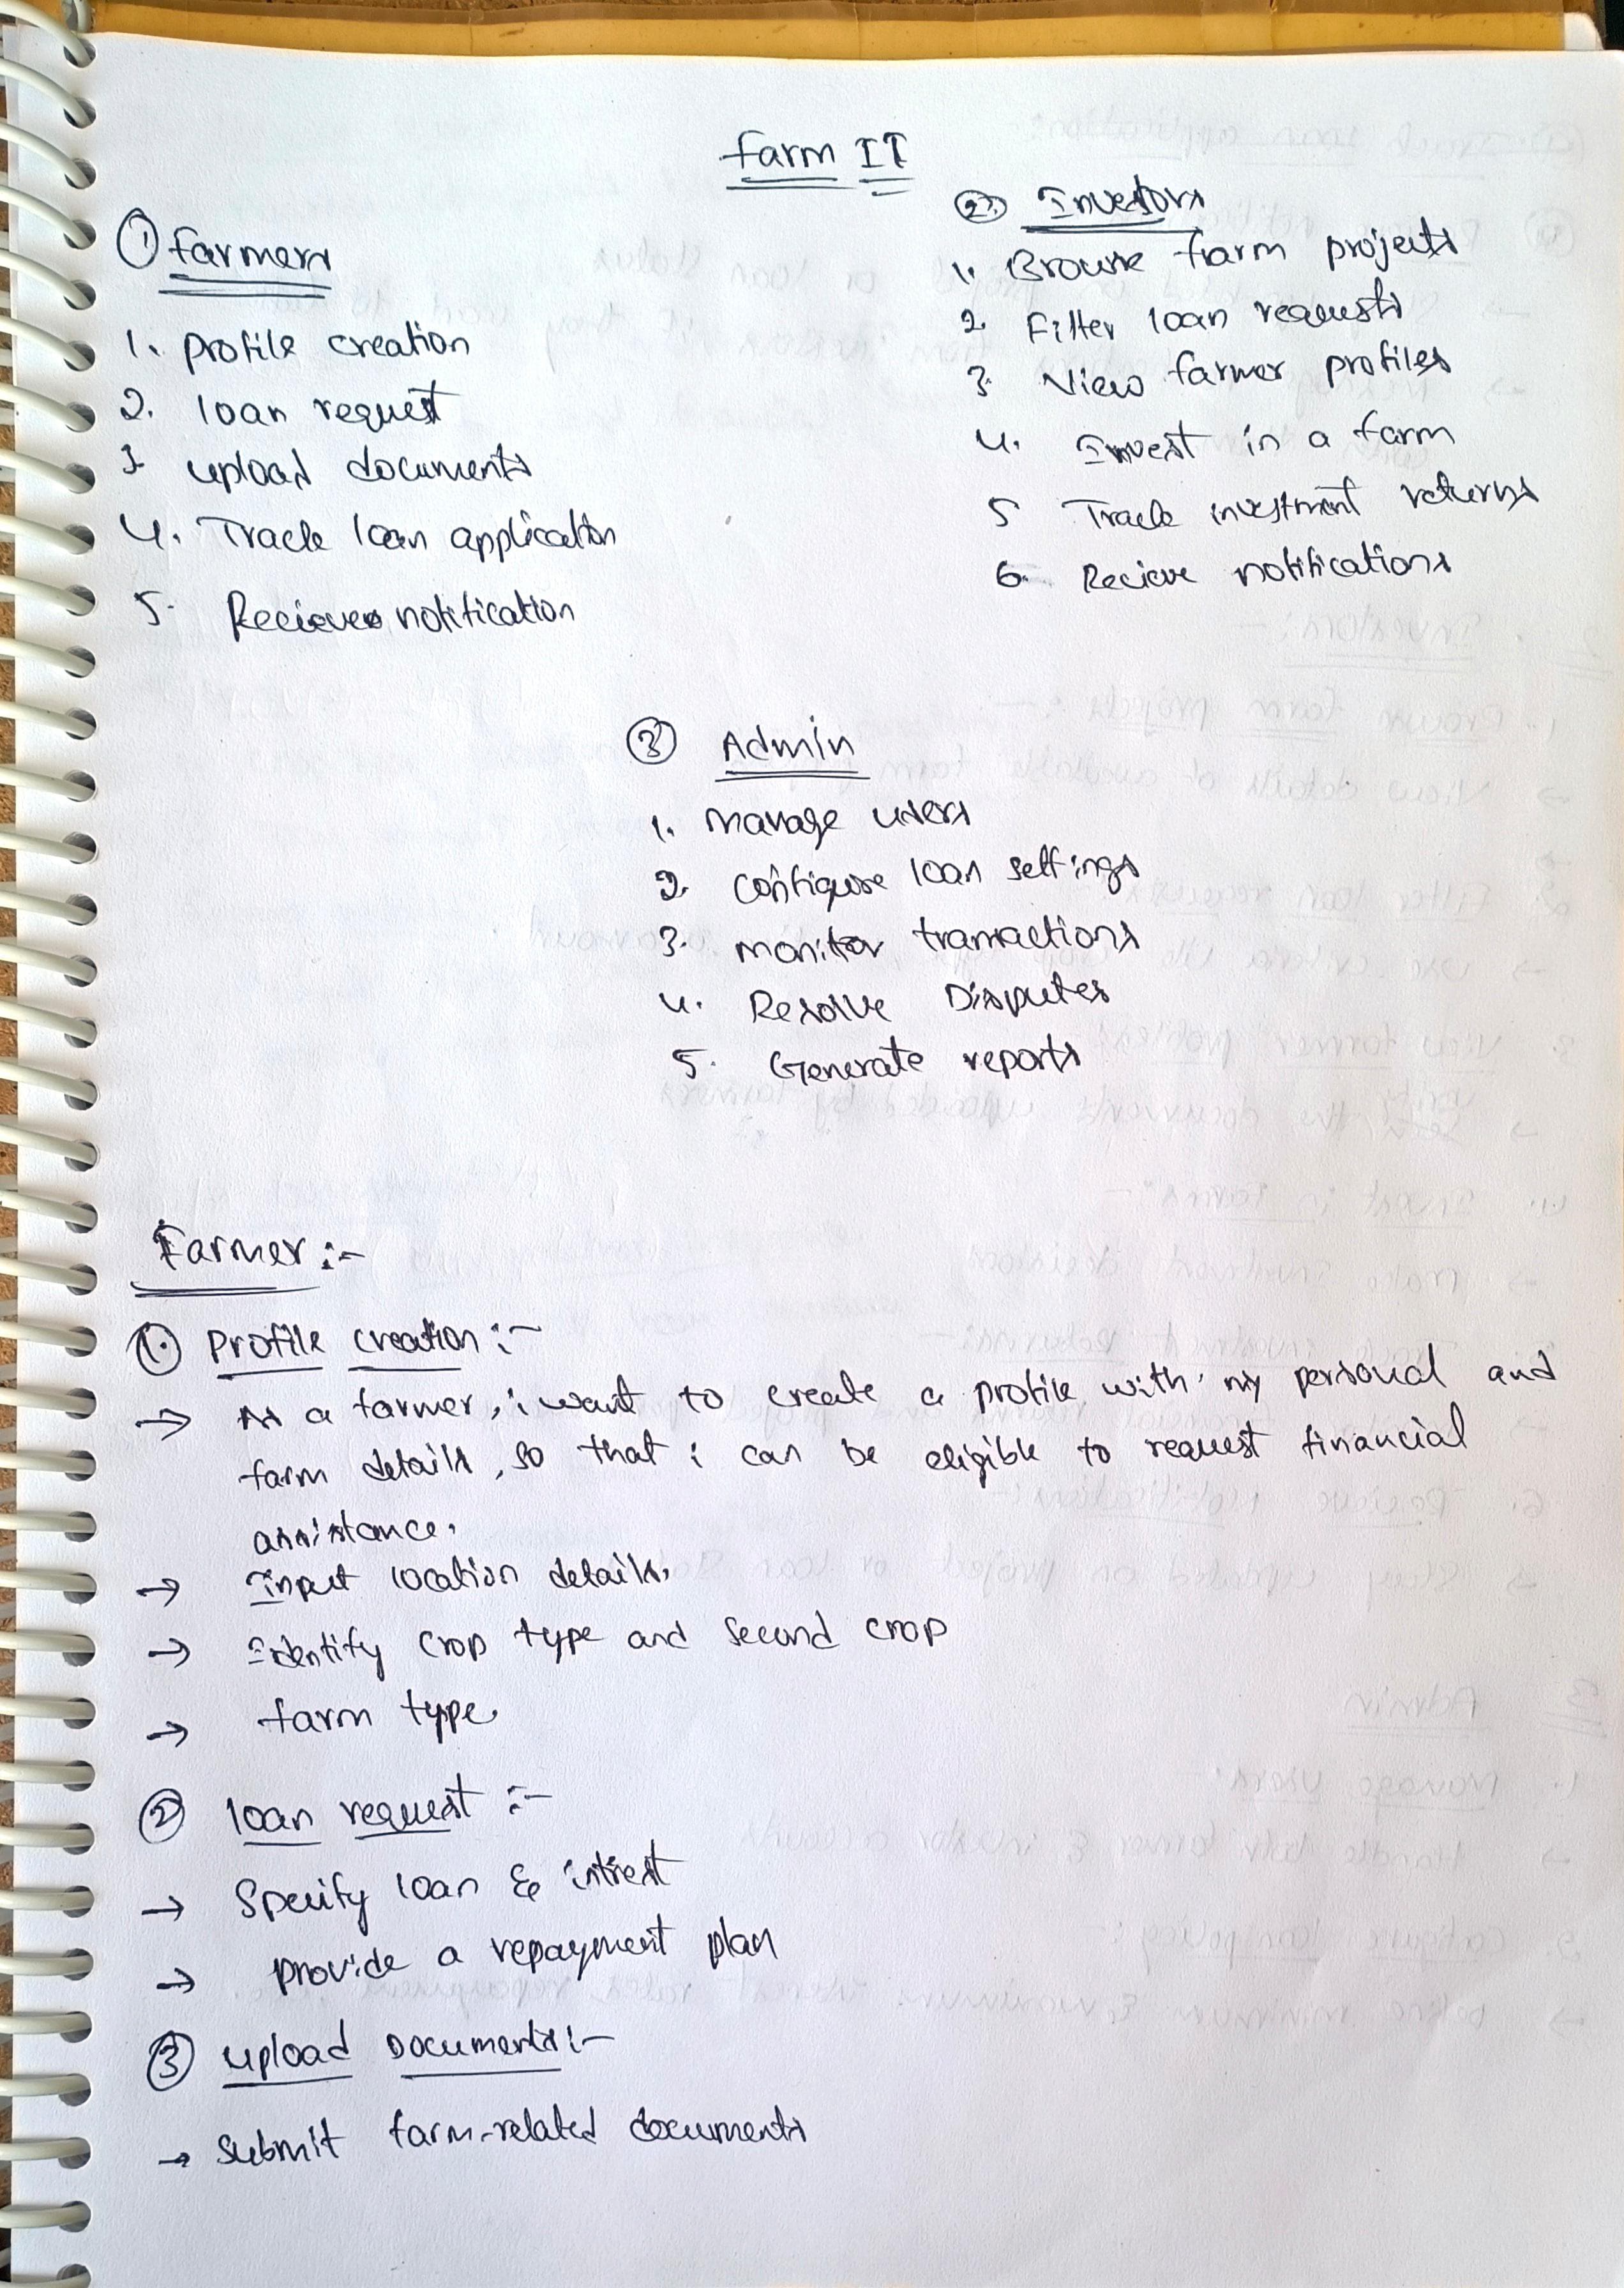 Farm IT
① Farmers
1. Profile creation
2. loan request
3. upload documents
4. Track loan application
5. Recieve notification
②. Investors
1. Browse farm projects
2. Filter loan requests
3. View farmer profiles
4. Invest in a farm
5 Track investment returns
6. Recieve notifications
③ Admin
1. Manage users
2. Configure loan settings
3. monitor transactions
4. Resolve Disputes
5. Generate reports
Farmer :-
①. Profile creation :-
→ As a farmer, i want to create a profile with my personal and
farm details, so that i can be eligible to request financial
assistance.
→ Input location details.
→ Identify crop type and second crop
→ farm type.
② loan request :-
→ Specify loan & intrest
→ provide a repayment plan
③ upload Documents :-
→ submit farm-related documents